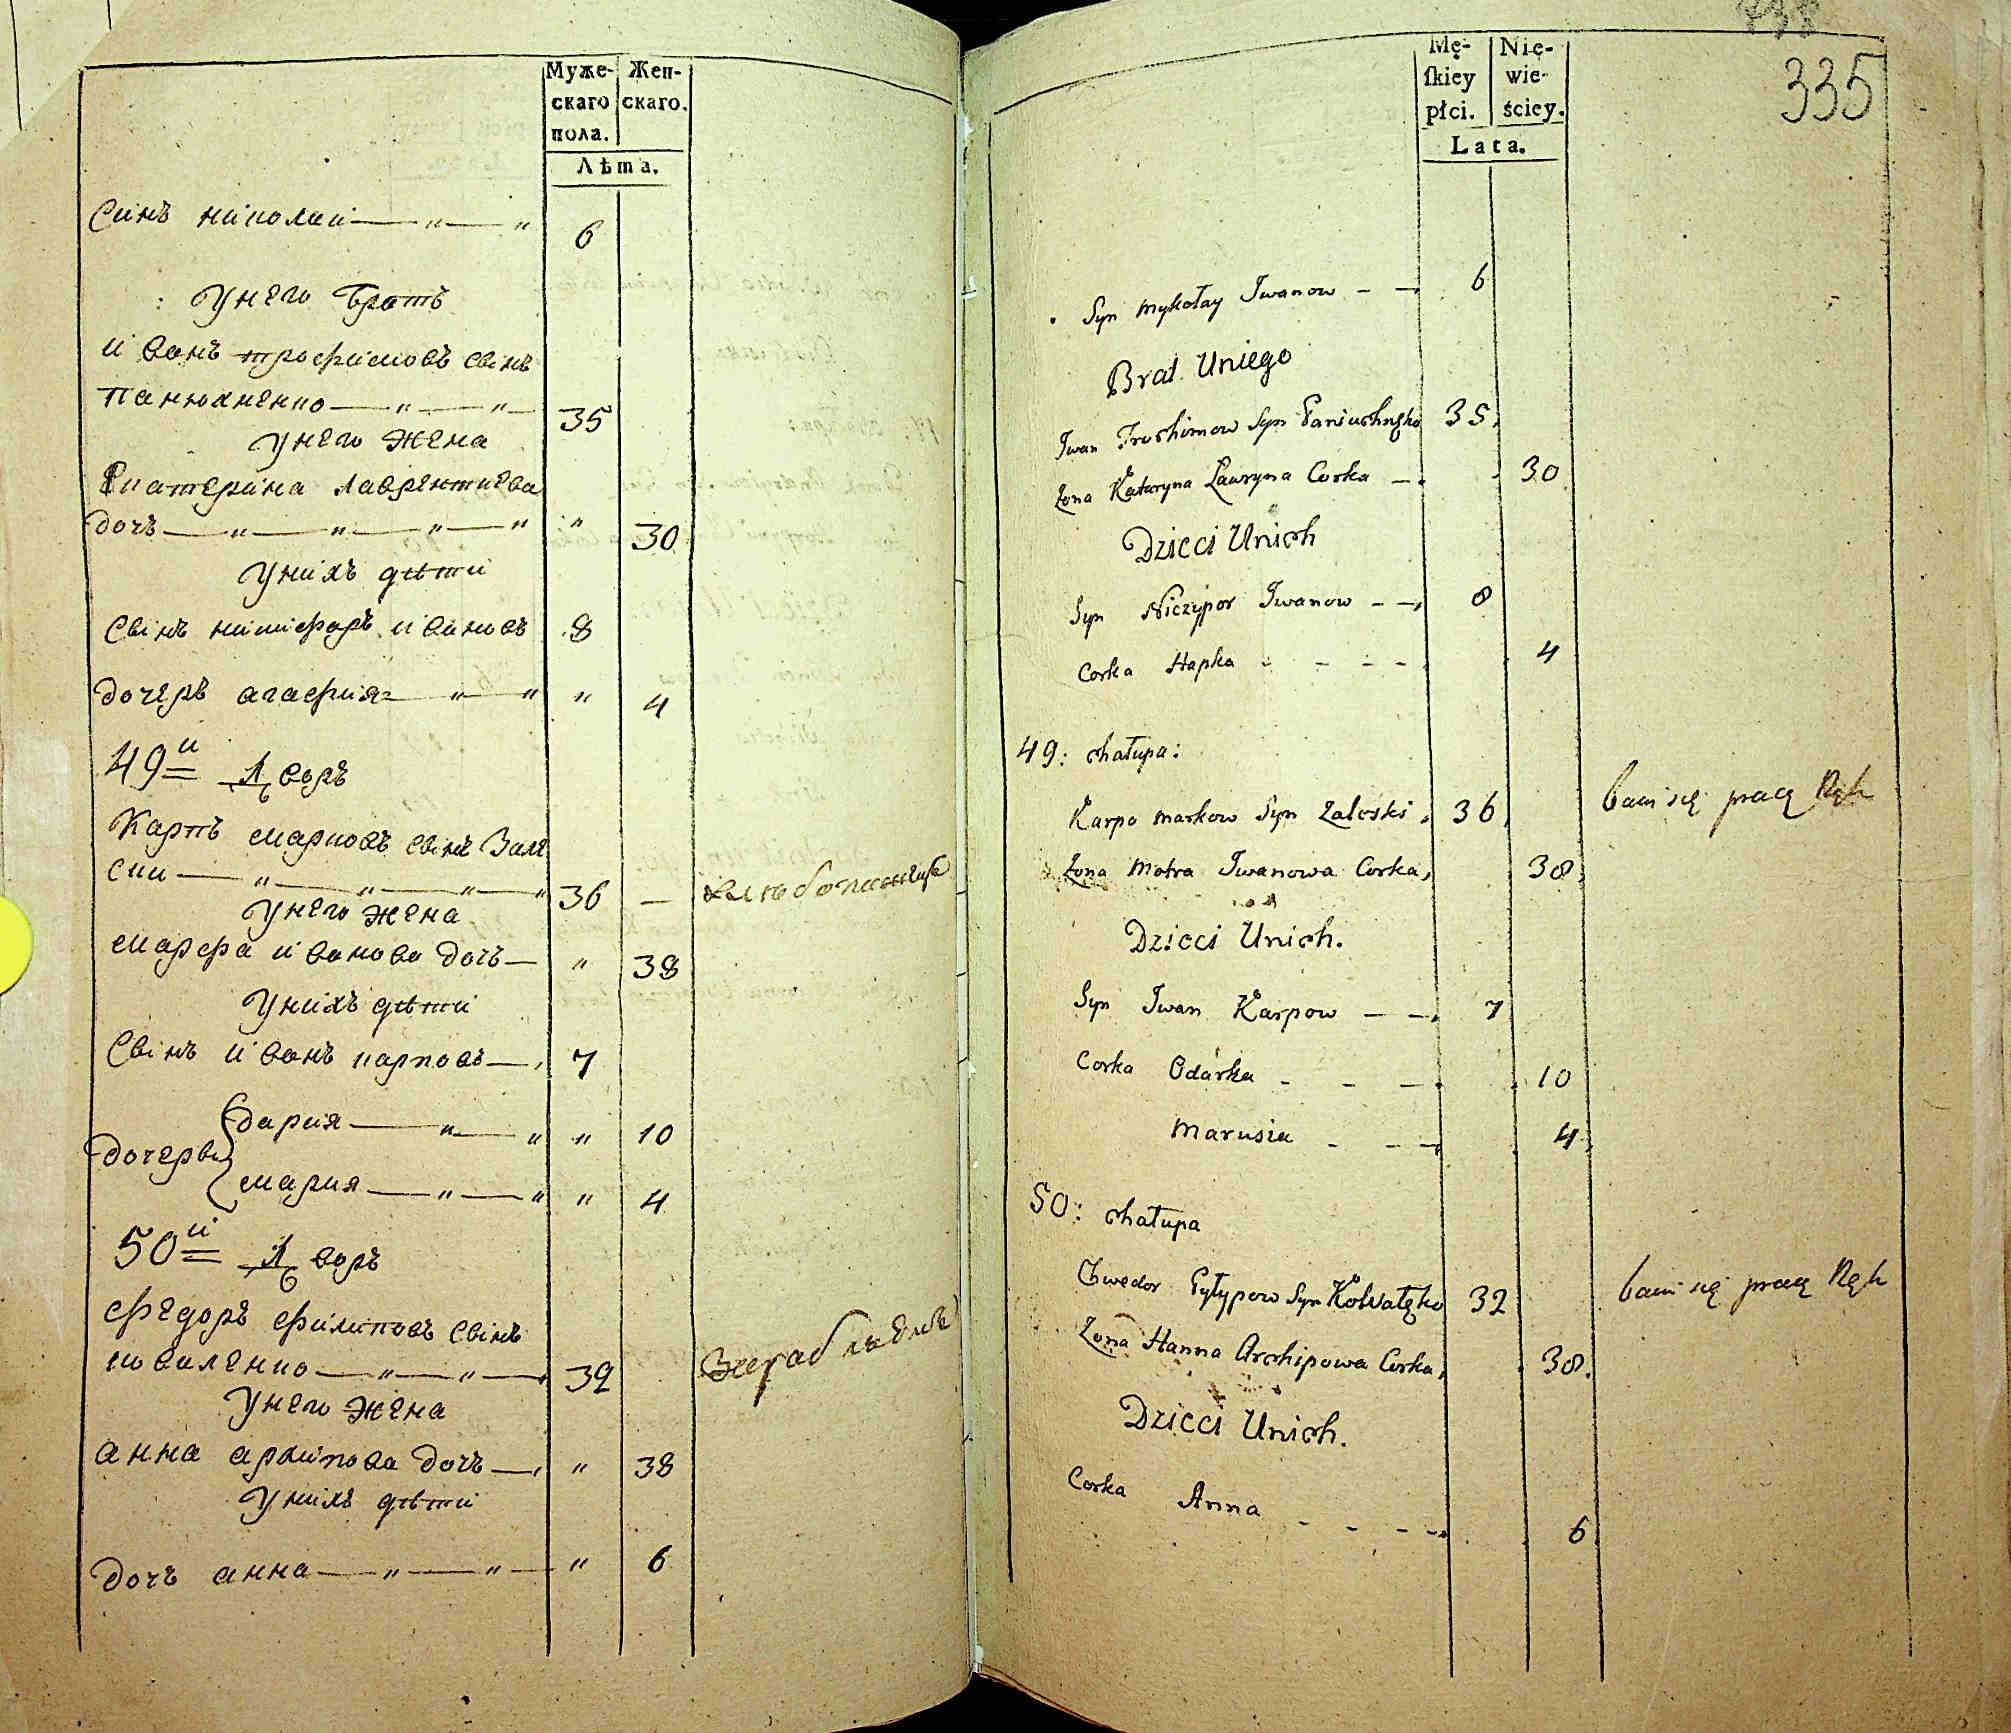 Муже-
скаго
пола.
Жен-
скаго.
Лѣта.
Синъ николай — „ — „ 6
: Унего братъ
иванъ трофимовъ свiнъ
Панюхненко — „ — „ — 35
Унего жена
Екатерина лаврентиева
дочъ — „ — „ — „ — „ „ 30
Унихъ дѣти
Свiнъ никифоръ ивановъ 8
дочеръ агафия — „ — „ „ 4
49й дворъ
Карпъ марковъ свiнъ Зале
ски — „ — „ — „ — „ 36 —
Унего жена
марфа иванова дочъ — „ 38
Унихъ дѣти
Свiнъ иванъ карповъ — 7
дария — „ — „ „ 10
дочерви
мария — „ — „ „ 4
50й дворъ
Федоръ филиповъ свiнъ
коваленко — „ — „ — 32
Унего жена
анна архипова дочъ — „ 38
Унихъ дѣти
дочъ анна — „ — „ — „ 6
335
Mę-
ſkiey
płci.
Nie-
wie-
ściey.
Lata.
Syn Mykołay Iwanow — — 6
Brat Uniego
Iwan Trochimow Syn Paniuchnęko 35
Żona Kataryna Ławryna Corka — 30
Dzieci Unich
Syn Niczypor Iwanow — — 8
Corka Hapka - - - - 4
49: chałupa:
Karpo markow Syn Zaleski 36 bawi się pracą Rąk
Żona Motra Iwanowa Corka, 38
Dzieci Unich.
Syn Iwan Karpow — — 7
Corka Odarka - - — 10
Marusia - - — 4
50: chałupa
Chwedor Pyłypow Syn Kowalęko 32 bawi się pracą Rąk
Żona Hanna Archipowa Corka, 38.
Dzieci Unich.
Corka Anna - - - - 6